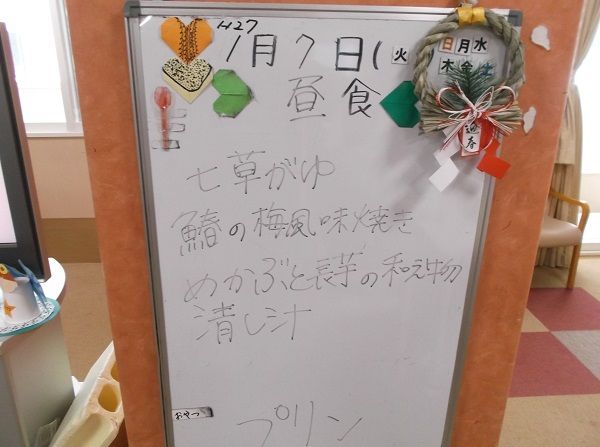 H27
1月7日(火)
日月水
木金土
昼食
迎春
七草がゆ
鰆の梅風味焼き
めかぶと長芋の和え物
清し汁
おやつ
プリン